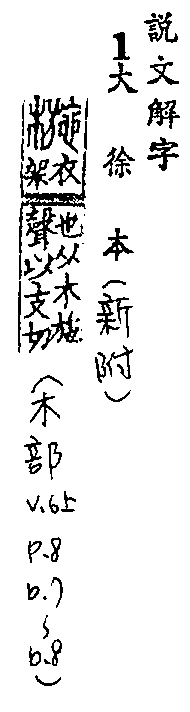 説文解字
1大徐本(新附)
椸衣
架
也从木施
聲以支切
(木部 v.6上 p.8 b.7~b.8)